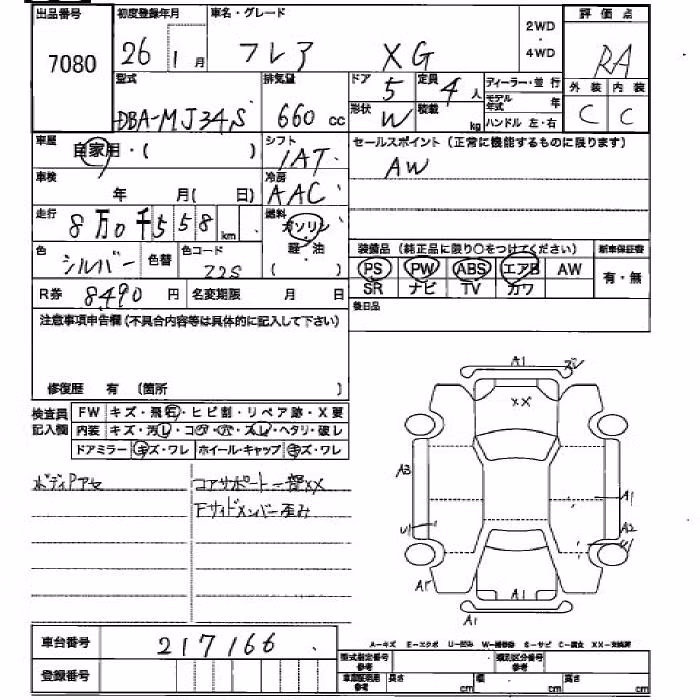 出品番号 初度登録年月 車名・グレード 2WD・4WD 評価点
7080 26年 1月 フレア XG RA
型式 排気量 ドア 5 定員 4人 ディーラー・並行 外装 内装
DBA-MJ34S 660 cc 形状 W 積載 kg モデル年式 年 C C
ハンドル 左・右
車歴 自家用・( ) シフト 1AT セールスポイント (正常に機能するものに限ります)
車検 年 月( 日) 冷房 AAC AW
走行 8万0千558 km 燃料 ガソリン・軽・油 ( )
色 シルバー 色替 色コード Z2S 装備品 (純正品に限り○をつけてください) 新車保証書
PS PW ABS エアB AW 有・無
SR ナビ TV カワ
R券 8490 円 名変期限 月 日 後日品
注意事項申告欄 (不具合内容等は具体的に記入して下さい)
修復歴 有 (箇所 )
検査員記入欄 FW キズ・飛石・ヒビ割・リペア跡・X要
内装 キズ・汚レ・コゲ・穴・スレ・ヘタリ・破レ
ドアミラー キズ・ワレ ホイール・キャップ キズ・ワレ
ボディPアセ コアサポート一部XX
下サイドメンバー歪み
A1
XX
A3
A1
A2
U1
A1
A1
A1
車台番号 217166
登録番号
A-キズ E-エクボ U-凹み S-サビ
型式指定番号 参考 類別区分番号 参考
参考 長さ cm 幅 cm 高さ cm